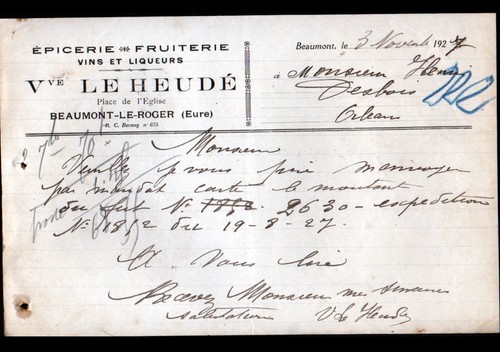 ÉPICERIE FRUITERIE
VINS ET LIQUEURS
Vve LE HEUDÉ
Place de l'Eglise
BEAUMONT-LE-ROGER (Eure)
R. C. Bernay n° 675
Beaumont, le 3 Novembre 1927
à Monsieur Henri
Desbois
Orléans
Monsieur
Veuillez je vous prie m'envoyer
par mandat carte le montant
du fut N° 1852 2630 - expedition
N° 1852 du 19-8-27.
A vous lire
Recevez Monsieur mes sinceres
salutations V Le Heudé